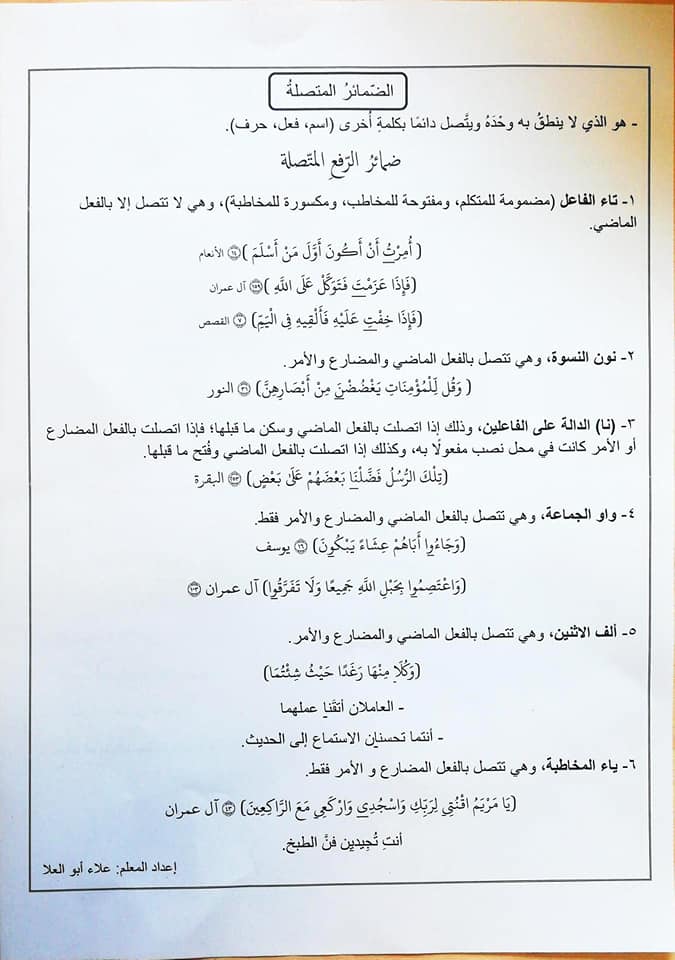 الضّمائرُ المتصلةُ
- هو الذي لا ينطقُ به وحْدَهُ ويتَّصل دائمًا بكلمةٍ أُخرى (اسم، فعل، حرف).
ضمائرُ الرّفعِ المتّصلة
١- تاء الفاعل (مضمومة للمتكلم، ومفتوحة للمخاطب، ومكسورة للمخاطبة)، وهي لا تتصل إلا بالفعل
الماضي.
( أُمِرْتُ أَنْ أَكُونَ أَوَّلَ مَنْ أَسْلَمَ ) ١٤ الأنعام
(فَإِذَا عَزَمْتَ فَتَوَكَّلْ عَلَى اللَّهِ ) ١٥٩ آل عمران
(فَإِذَا خِفْتِ عَلَيْهِ فَأَلْقِيهِ فِي الْيَمِّ) ٧ القصص
٢- نون النسوة، وهي تتصل بالفعل الماضي والمضارع والأمر.
( وَقُل لِّلْمُؤْمِنَاتِ يَغْضُضْنَ مِنْ أَبْصَارِهِنَّ) ٣١ النور
٣- (نا) الدالة على الفاعلين، وذلك إذا اتصلت بالفعل الماضي وسكن ما قبلها؛ فإذا اتصلت بالفعل المضارع
أو الأمر كانت في محل نصب مفعولًا به، وكذلك إذا اتصلت بالفعل الماضي وفُتح ما قبلها.
(تِلْكَ الرُّسُلُ فَضَّلْنَا بَعْضَهُمْ عَلَىٰ بَعْضٍ) ٢٥٣ البقرة
٤- واو الجماعة، وهي تتصل بالفعل الماضي والمضارع والأمر فقط.
(وَجَاءُوا أَبَاهُمْ عِشَاءً يَبْكُونَ) ١٦ يوسف
(وَاعْتَصِمُوا بِحَبْلِ اللَّهِ جَمِيعًا وَلَا تَفَرَّقُوا) آل عمران ١٠٣
٥- ألف الاثنين، وهي تتصل بالفعل الماضي والمضارع والأمر.
(وَكُلَا مِنْهَا رَغَدًا حَيْثُ شِئْتُمَا)
- العاملان أتقَنا عملهما
- أنتما تحسنانِ الاستماع إلى الحديث.
٦- ياء المخاطبة، وهي تتصل بالفعل المضارع و الأمر فقط.
(يَا مَرْيَمُ اقْنُتِي لِرَبِّكِ وَاسْجُدِي وَارْكَعِي مَعَ الرَّاكِعِينَ) ٤٣ آل عمران
أنتِ تُجِيدِين فنَّ الطبخ.
إعداد المعلم: علاء أبو العلا